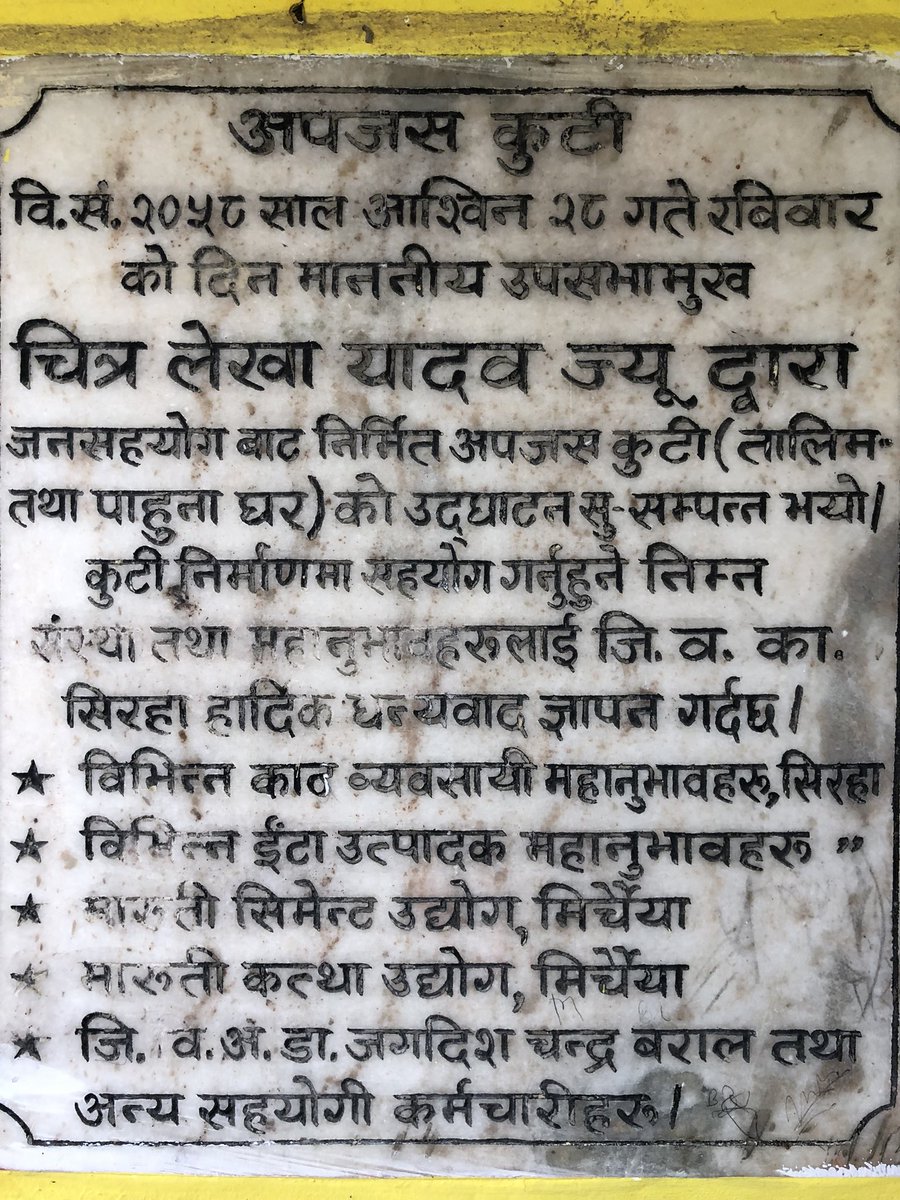 अपजस कुटी
वि.सं. २०५८ साल आश्विन २८ गते रबिवार
को दिन माननीय उपसभामुख
चित्र लेखा यादव ज्यू द्वारा
जनसहयोग बाट निर्मित अपजस कुटी (तालिम-
तथा पाहुना घर) को उद्घाटन सु-सम्पन्न भयो।
कुटी निर्माणमा सहयोग गर्नुहुने निम्न
संस्था तथा महानुभावहरूलाई जि. व. का.
सिरहा हादिक धन्यवाद ज्ञापन गर्दछ।
★ विभिन्न काठ व्यवसायी महानुभावहरू, सिरहा
★ विभिन्न ईंटा उत्पादक महानुभावहरू ”
★ मारुती सिमेन्ट उद्योग, मिर्चैया
★ मारुती कत्था उद्योग, मिर्चैया
★ जि. व. अ. डा. जगदिश चन्द्र बराल तथा
अन्य सहयोगी कर्मचारीहरू।